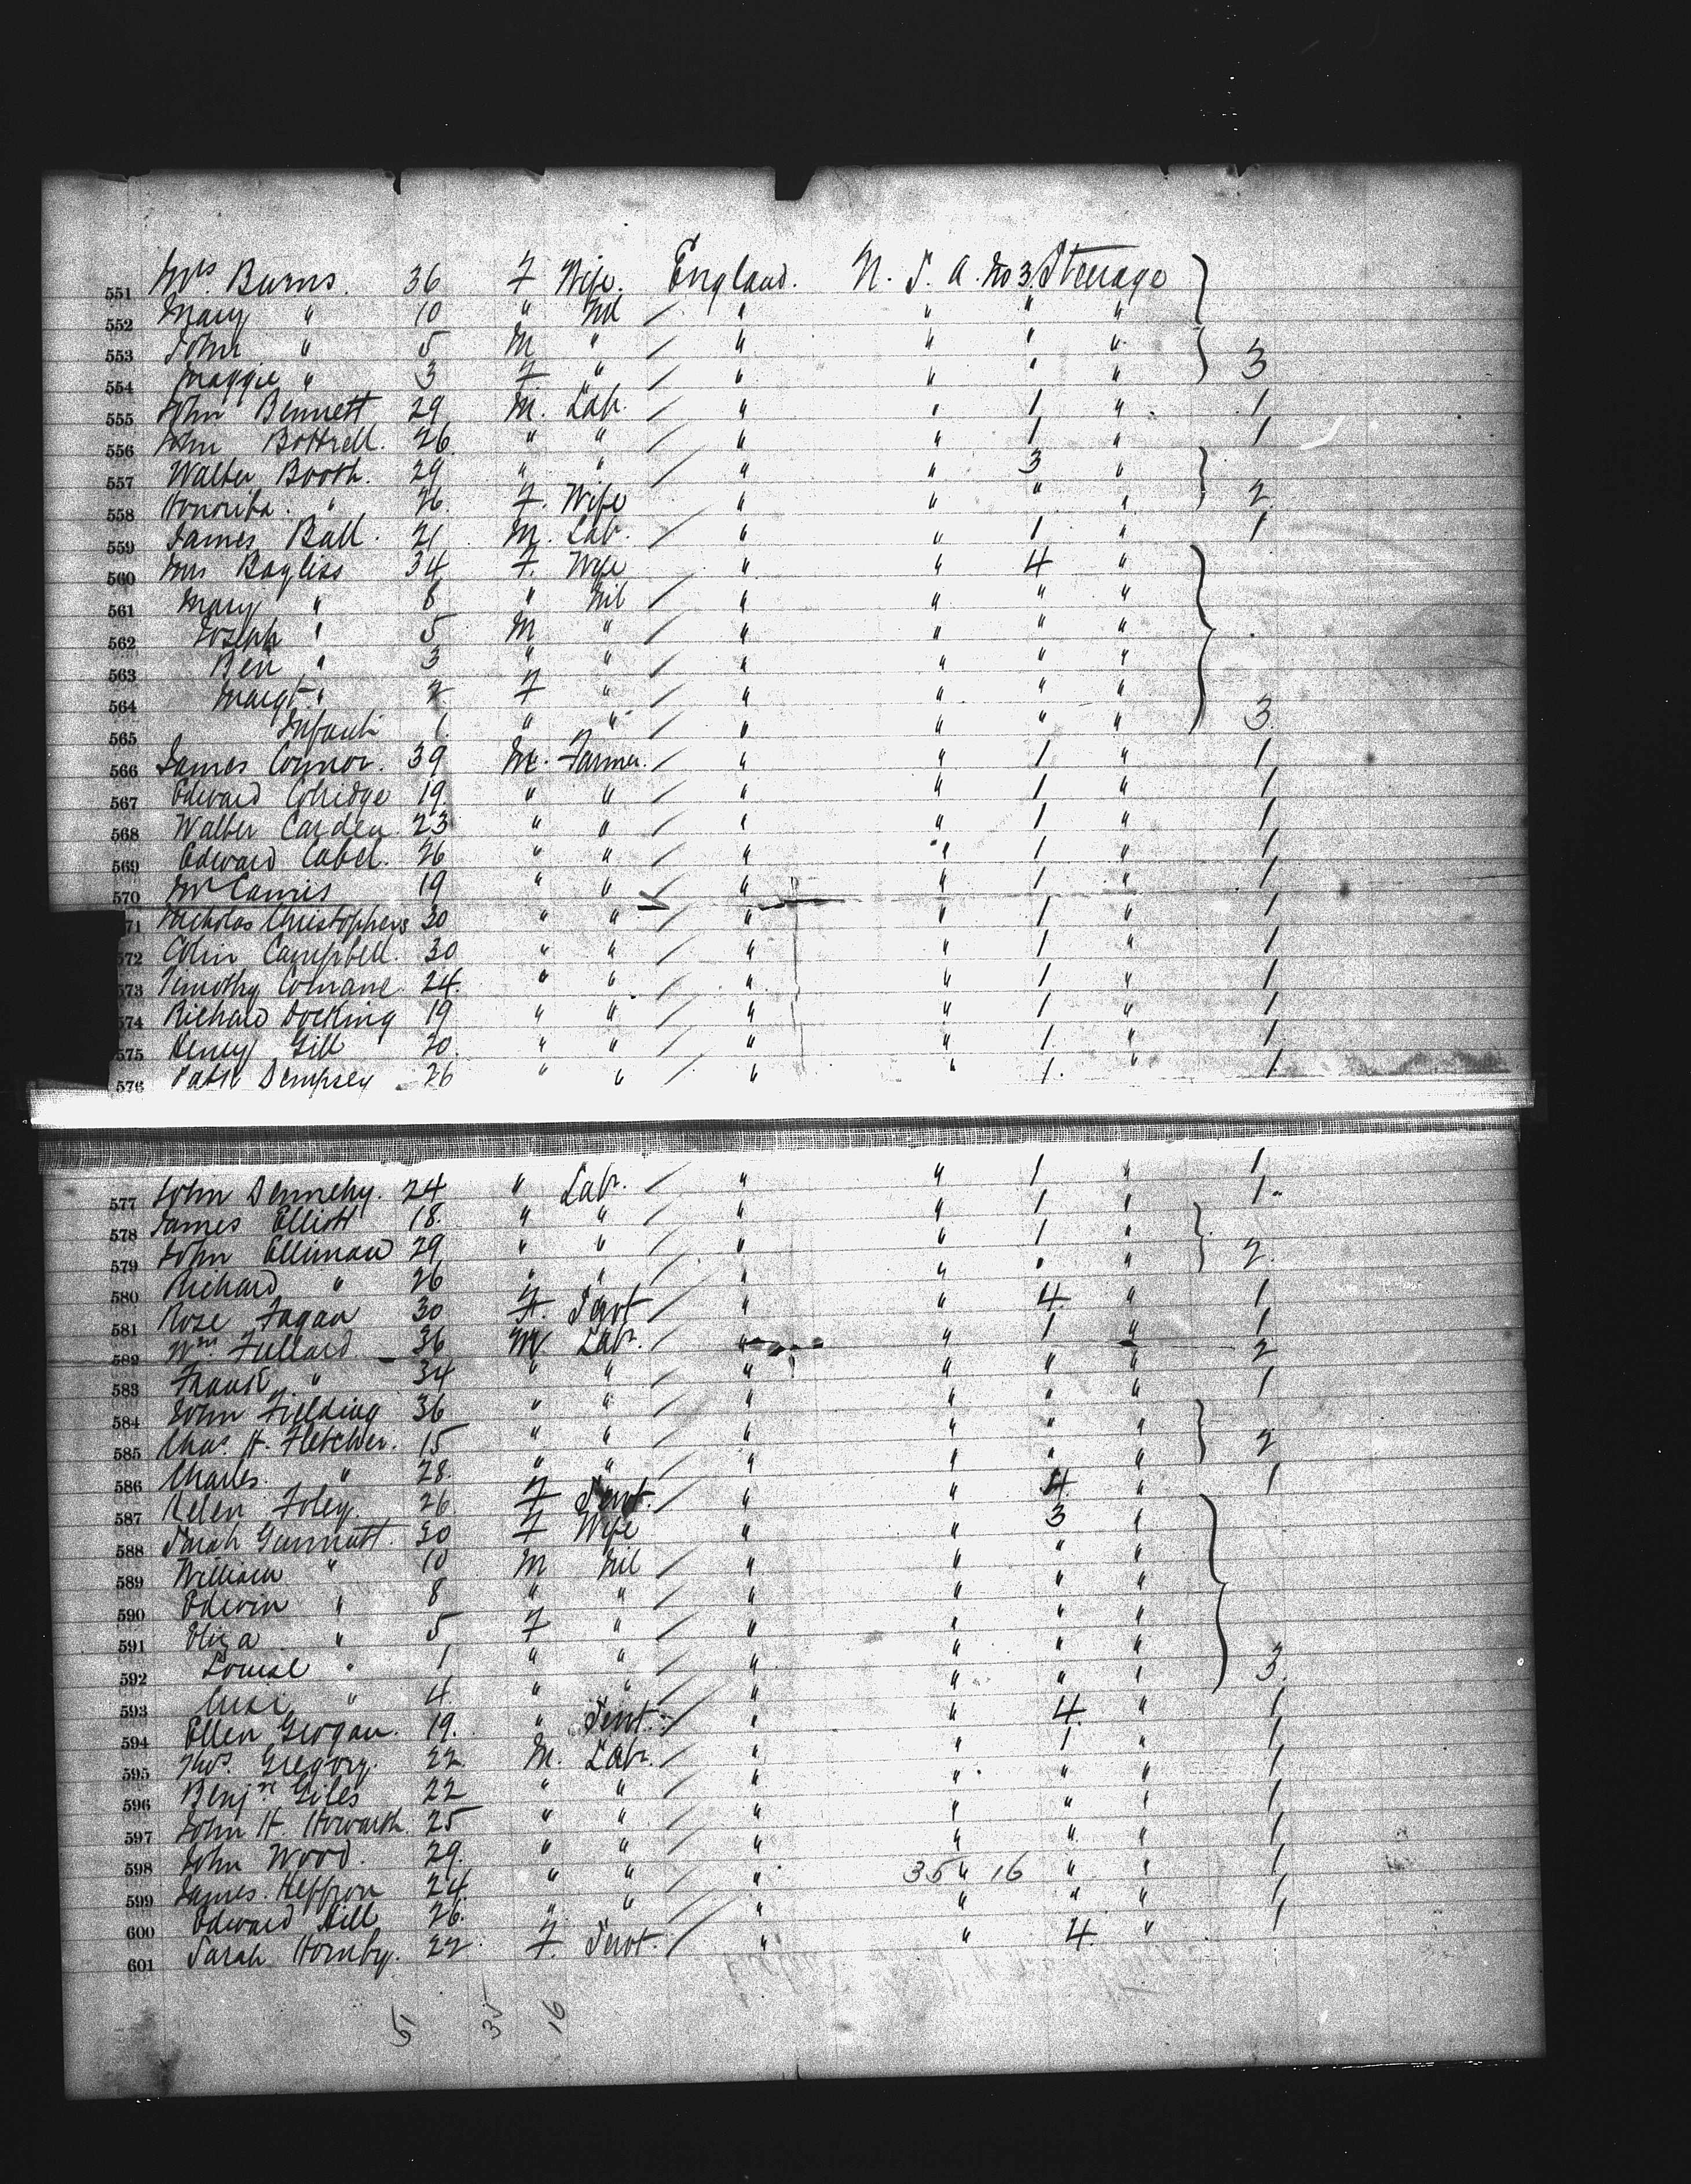 551 Mrs. Burns. 36 F Wife. England. U. S. A. No 3. Steerage
552 Mary " 10 " Nil / " " " "
553 John " 5 M " / " " " " 3
554 Maggie " 3 F " / " " " "
555 John Bennett 29 M. Lab. / " " 1 " 1
556 John Bottrell. 26. " " / " " 1 " 1
557 Walter Booth. 29 " " / " " 3 "
558 " 26 F. Wife " " " " 2
559 James Ball. 21 M. Lab. / " " 1 " 1
560 Mrs Bayliss 34 F. Wife " " 4 "
561 Mary " 8 " Nil / " " " "
562 Joseph " 5 M " / " " " "
563 Ben " 3 " " / " " " "
564 Margt " 2 F " / " " " "
565 Infant 1 " " / " " " " 3
566 James Connor. 39 M. Farmer. / " " 1 " 1
567 Edward 19. " " / " " 1 " 1
568 Walter Carden. 23 " " / " " 1 " 1
569 Edward Cabel. 26 " " / " " 1 " 1
570 Mr 19 " " / " " 1 " 1
71 Nicholas Christophers 30 " " / " " 1 " 1
572 Colin Campbell. 30 " " / " " 1 " 1
573 Timothy 24. " " / " " 1 " 1
574 Richard Docking 19 " " / " " 1 " 1
575 Henry Gill 20. " " / " " 1. " 1
576 Patk Dempsey 26 " " / " " 1. " 1
577 John Dennehy. 24 " Labr. / " " 1 " 1
578 James Elliott 18. " " / " " 1 " 1
579 John 29 " " / " " 1 "
580 Richard " 26 " " / " " " " 2
581 Rose Fagan 30 F. Servt / " " 4 " 1
582 Wm Fullard 36 M Labr. / " " 1 " 1
583 Frank " 34 " " / " " " " 2
584 John Fielding 36 " " / " " " " 1
585 Chas. H. Fletcher. 15 " " / " " " "
586 Charles. " 28. " " / " " " " 2
587 Foley. 26 F Servt. / " " 4 " 1
588 Sarah 30 F Wife " " 3 "
589 William " 10 M Nil / " " " "
590 Edwin " 8 " " / " " " "
591 Eliza " 5 F " / " " " "
592 " 1 " " / " " " "
593 " 4. " " / " " " " 3.
594 Ellen Grogan. 19. " Servt. / " " 4. " 1
595 Thos. Gregory. 22. M. Labr. / " " 1 " 1
596 Benjn Giles 22 " " / " " " " 1
597 John H. Howarth. 25 " " / " " " " 1
598 John Wood. 29. " " / " " " " 1
599 James Heffron 24. " " / " 35 " 16 " " 1
600 Edward Hill 26. " " / " " " " 1
601 Sarah Hornby. 22. F. Servt. / " " 4. " 1
5 35 16